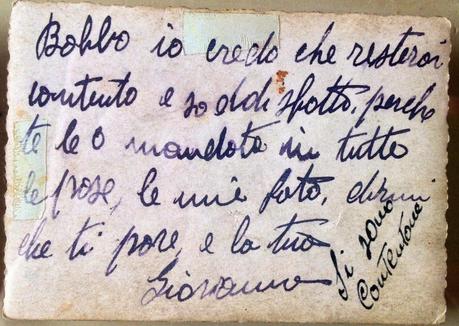 Babbo io credo che resterai
contento e soddisfatto, perche
te le o mandate in tutte
le pose, le mie foto, dimmi
che ti pare, e la tua
Giovanna
Si sono
Contentona